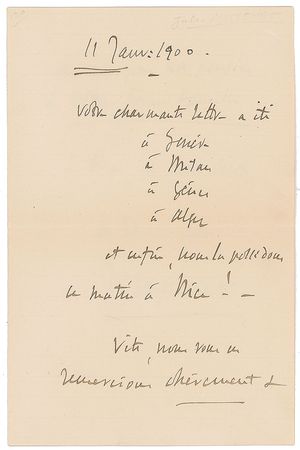 11 Janv. 1900.
Votre charmante lettre a été
à Genève
à Milan
à Gênes
à Alger
et enfin, nous la possédons
ce matin à Nice ! —
Vite, nous vous en
remercions chèrement &